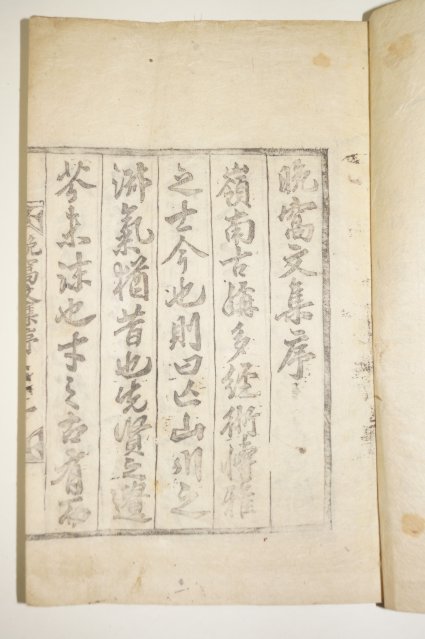 晩窩文集序
嶺南古稱多經術博雅
之士今也則曰亡山川之
淑氣猶昔也先賢之遺
芬未沫也才之古有而
晩窩文集序